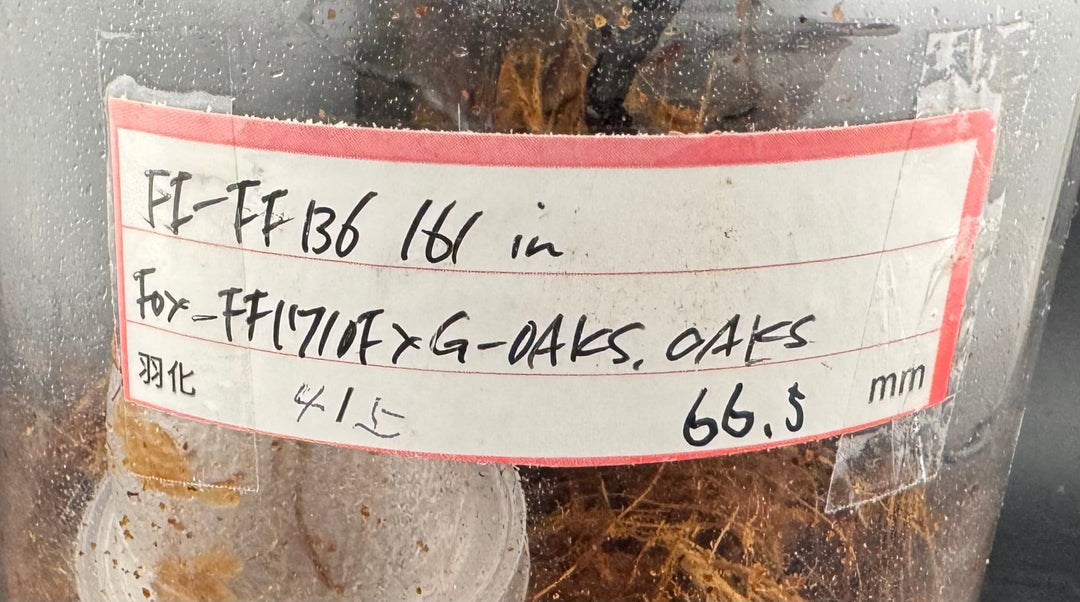 FI-FF136 161 in
Fox-FF1710FxG-OAKS. OAKS
羽化 4/5 66.5 mm